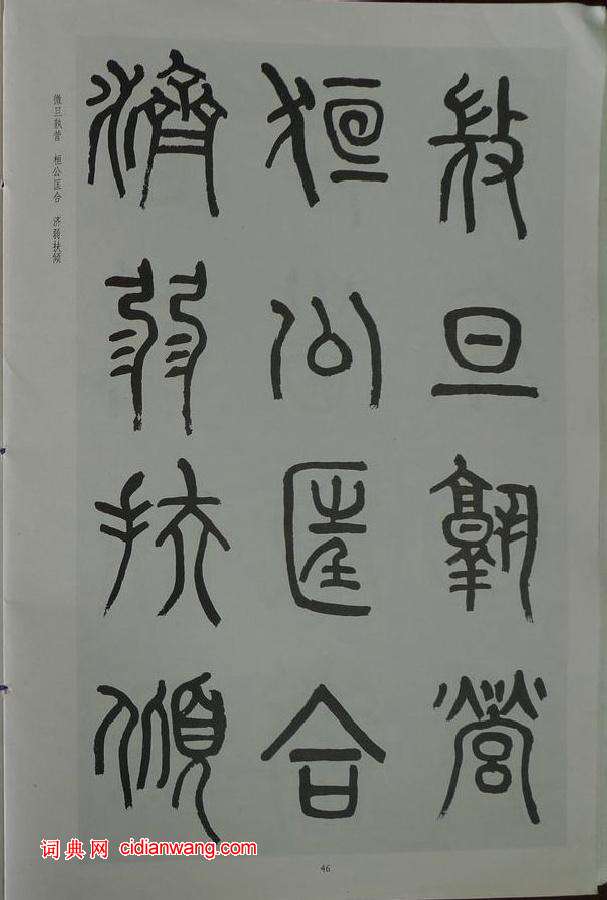 微旦孰營
桓公匡合
濟弱扶傾
微旦孰营 桓公匡合 济弱扶倾
词典网 cidianwang.com
46